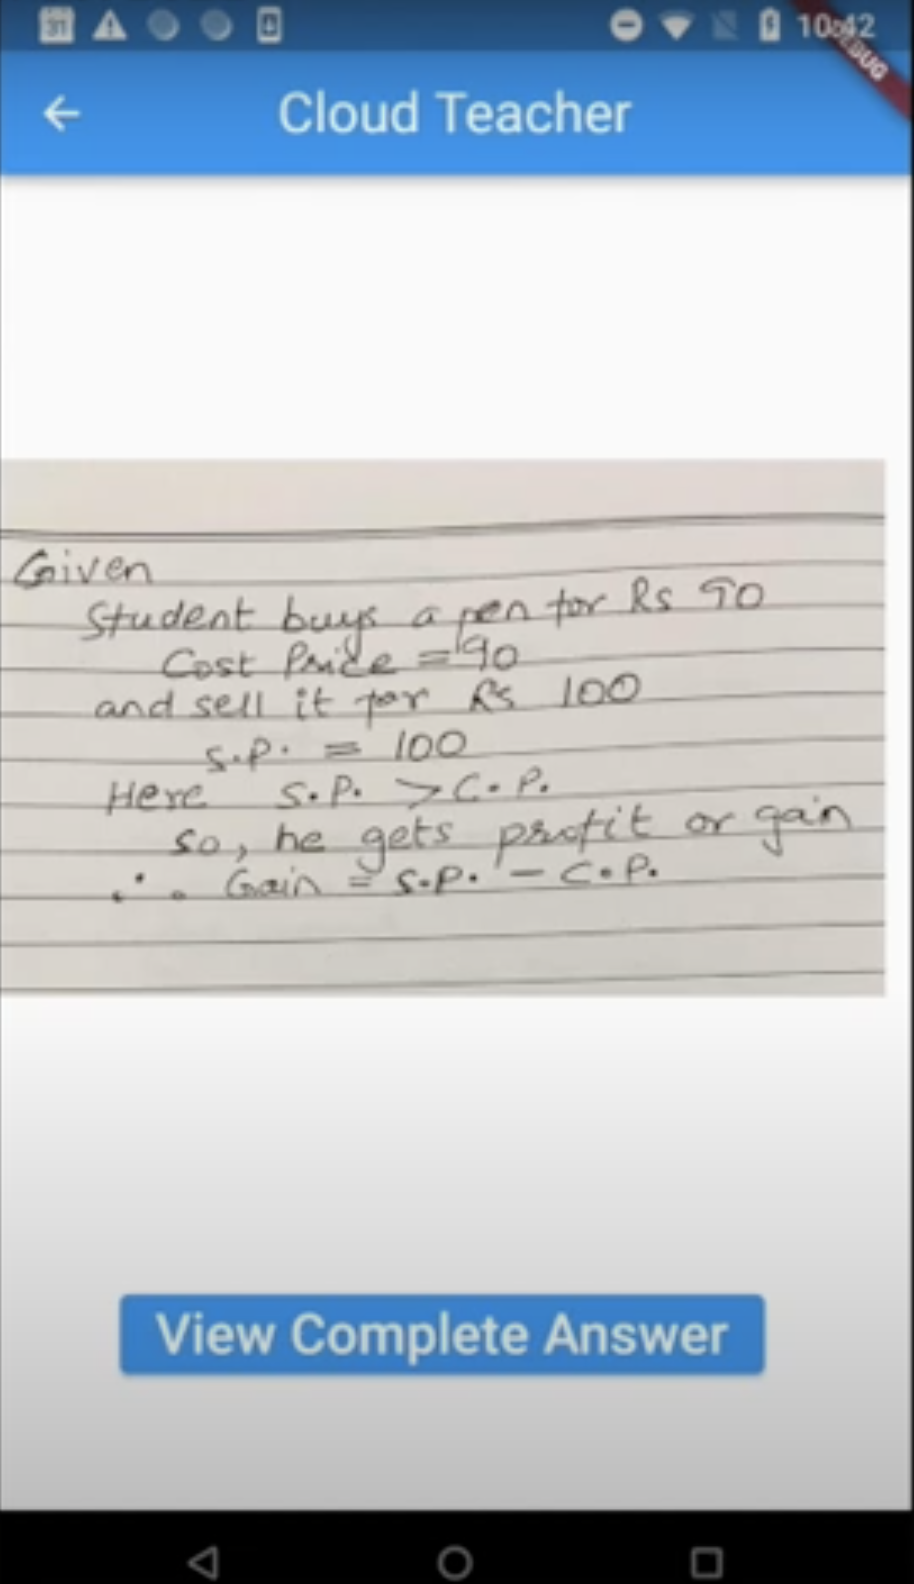 31
10:42
DEBUG
Cloud Teacher
Given
Student buys a pen for Rs 90
Cost Price = 90
and sell it for Rs 100
S.P. = 100
Here S.P. > C.P.
so, he gets profit or gain
∴ Gain = S.P. - C.P.
View Complete Answer